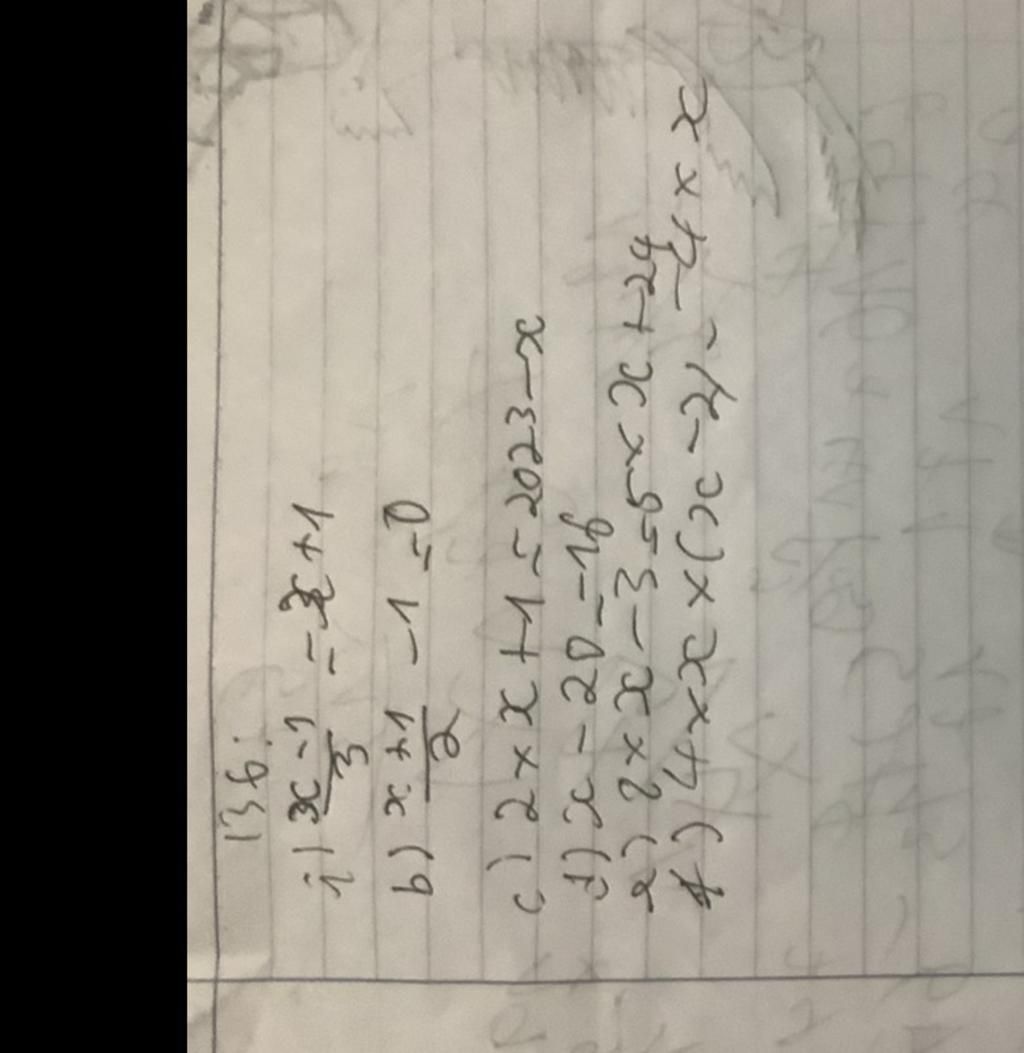 136:
i) x-1/3 = x+1
b) x+1/2 -1 = 0
c) 2 × x + 1 = 2023 - x
d) x - 20 = -16
e) 2 × x - 3 = 5 × x + 24
f) 4 × x × (x - 2) - 4 × x